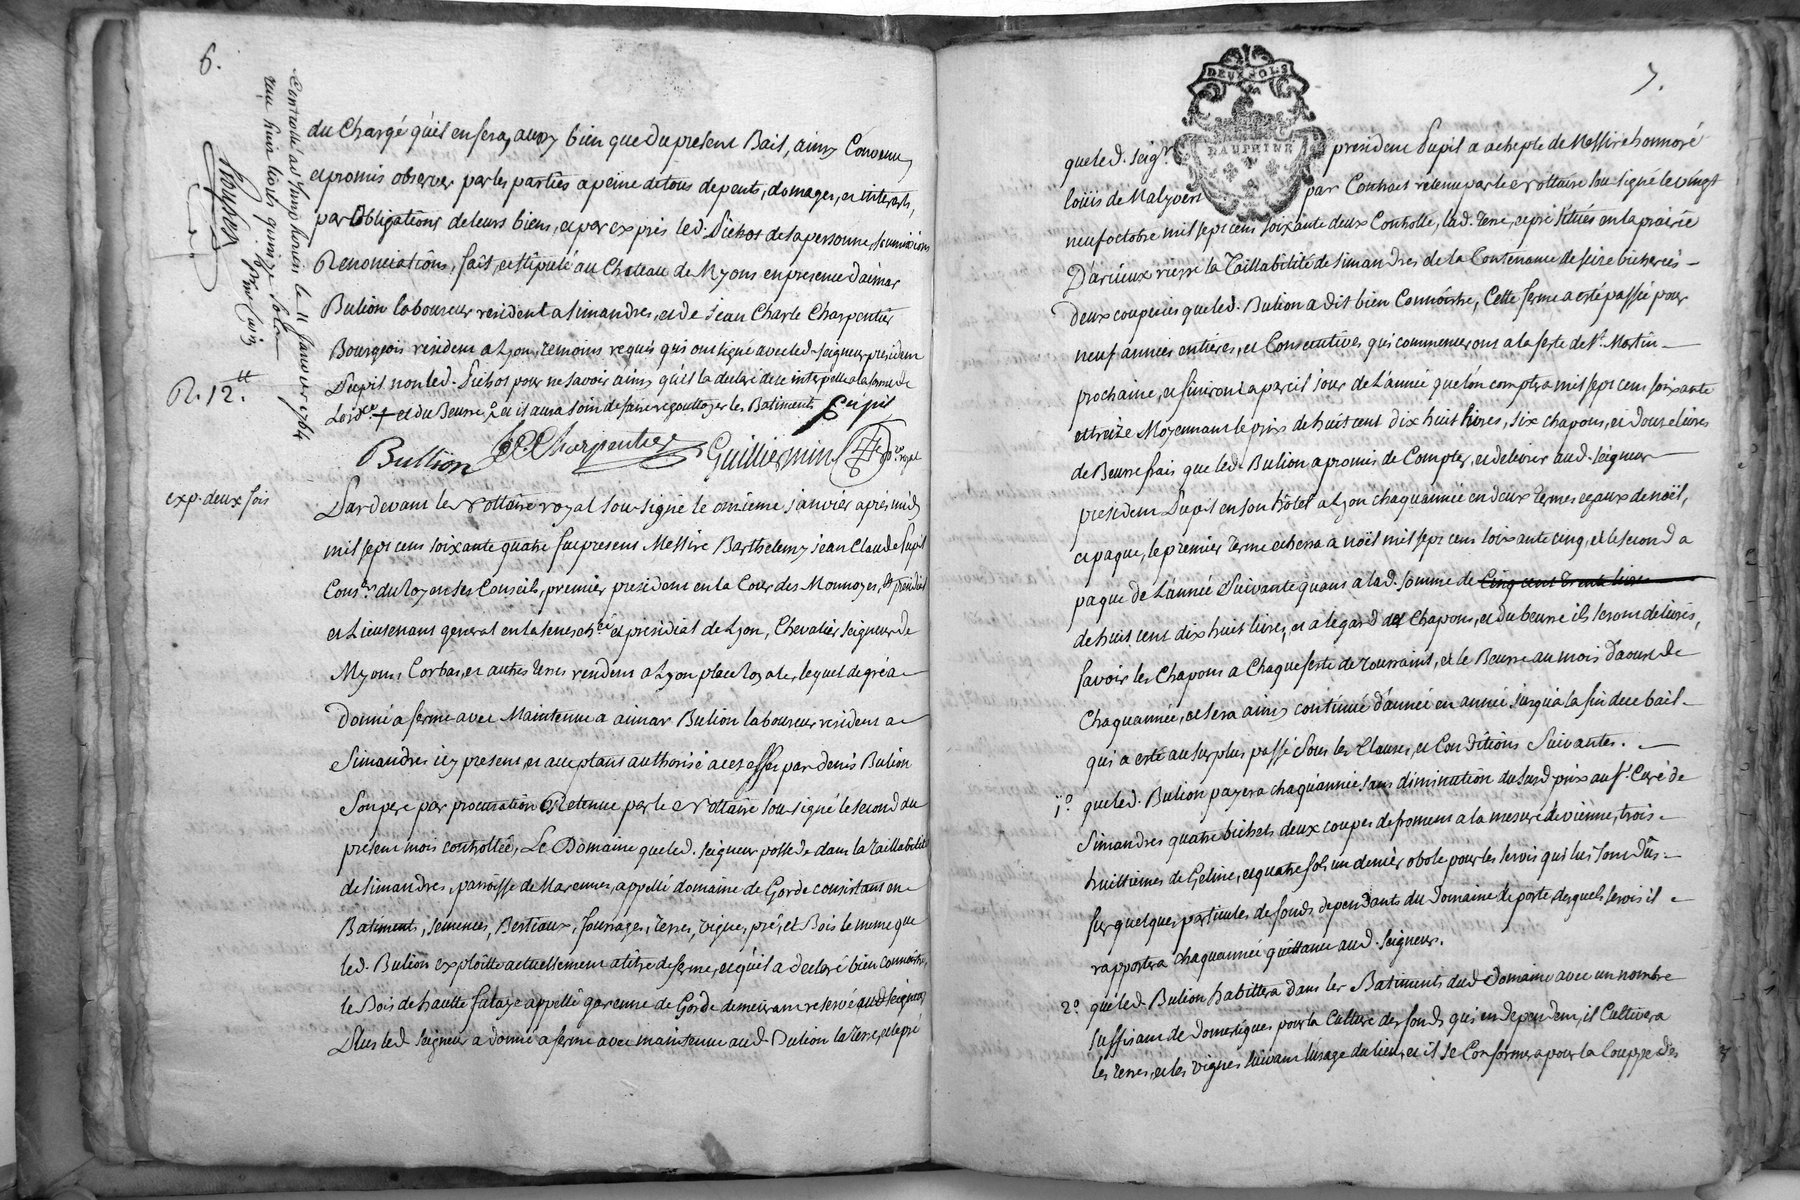 6.
Controllé a St simphorien le 11 janvier 1764
reçu huit livres quinze sols
R. 12.tt
du Chargé qu'il en fera, aussy bien que du present Bail, ainsy Convenu
et promis observer par les parties a peine de tous depents, domages, et interests,
par obligations de leurs biens, et par exprés led. Pichot de sa personne, soumissions
Renonciations, fait, et stipulé au Chateau de Myons en presence d'aimar
Bulion laboureur resident a simandres, et de jean Charle Charpentier
Bourgeois resident a Lyon, temoins requis qui ont signé avec led. seigneur president
Pupil non led. Pichot pour ne savoir ainsy qu'il la declaré de ce interpellé a la forme de
Loid.ce + et du Beurre, et il aura soin de faire regouttoyer les Batiments Pupil
Bullion J. C. Charpentier Guilliermin n.re royal
exp. deux fois
Pardevant le Nottaire royal sousigné le onzieme janvier aprés midy
mil sept cent soixante quatre fut present Messire Barthelemy jean Claude Pupil
Cons.er du roy en ses Conseils, premier president en la Cour des Monnoyes, et president
et Lieutenant general en la senech.cée et presidial de Lyon, Chevalier seigneur de
Myons, Corbas, et autres terres resident a Lyon place royale, lequel de gré a
donné a ferme avec Maintenue a aimar Bulion laboureur resident a
Simandres icy present, et acceptant authorisé a cet effet par denis Bulion
Son pere par procuration Retenue par le Nottaire sousigné le second du
present mois controllée, Le Domaine que led. seigneur possede dans la taillabilité
de simandres, parroisse de Marennes, appellé domaine de Gorde consistant en
Batiments, semences, Bestiaux, fourrages, terres, vigne, pré, et Bois le meme que
led. Bulion exploitte actuellement a titre de ferme, et qu'il a declaré bien connoistre,
le Bois de hautte futaye appellé garenne de Gorde demeurant reservé aud. seigneur
Plus led. seigneur a donné a ferme avec maintenue aud. Bulion la terre, et le pré
7.
DEUX SOLS
DAUPHINE
que led. seig.r president Pupil a achepté de Messire honnoré
loüis de Malyvert par Contrat retenu par le Nottaire sousigné le vingt
neuf octobre mil sept cent soixante deux Controllé, lad. terre, et pré situés en la prairie
D'arieux riere la Taillabilité de simandres de la Contenance de seize bicherées
Deux couperées que led. Bulion a dit bien Connoistre, Cette ferme a esté passée pour
neuf années entieres, et Consecutives qui commenceront a la feste de S.t Martin
prochaine, et finiront a pareil jour de L'année que l'on comptera mil sept cent soixante
et treize Moyennant le prix de huit cent dix huit livres, six chapons, et douze livres
de Beurre frais que led. Bulion a promis de Compter, et delivrer aud. seigneur
president Pupil en son hôtel a Lyon chaquannée en deux termes egaux de noël,
et paque, le premier terme echerra a noël mil sept cent soixante cinq, et le second a
paque de L'année Suivante quant a lad. somme de cinq cent trente livres
de huit cent dix huit livres, et a legard des Chapons, et du beurre ils seront delivrés,
savoir les Chapons a Chaque feste de toussaint, et le Beurre au mois d'aoust de
Chaquannée, et sera ainsy continué d'année en année jusqu'a la fin de ce bail
qui a esté au surplus passé sous les Clauses, et Conditions Suivantes.
1.° que led. Bulion payera chaquannée sans diminution du susd. prix au S.r Curé de
Simandres quatre bichets deux coupes de froment a la mesure de vienne, trois
huittiemes de Geline, et quatre sols un denier obole pour les servis qui lui sont dûs
sur quelques particules de fonds dependants du domaine de porte desquels servis il
rapportera chaquannée quittance aud. seigneur.
2.° que led. Bulion habittera dans les Batiments dud. Domaine avec un nombre
suffisant de domestiques pour la Culture des fonds qui en dependent, il Cultivera
les terres, et les vignes suivant l'usage du lieu, et il se Conformera pour la Couppe des